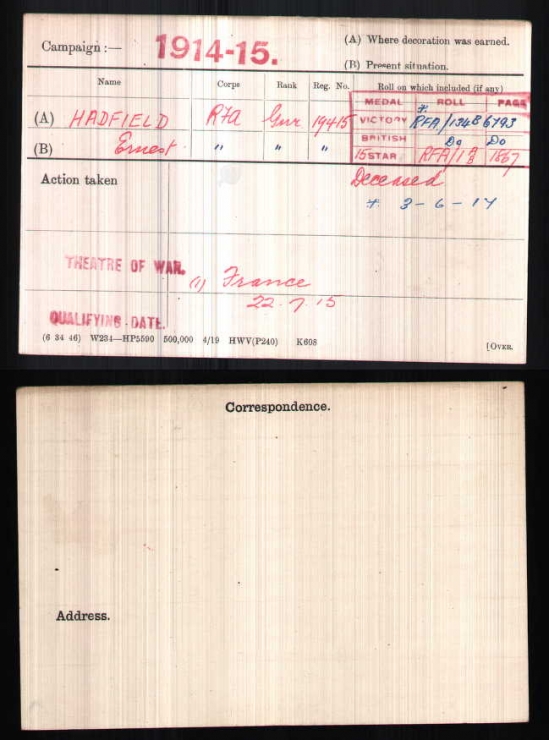 Campaign :— 1914-15.
(A) Where decoration was earned.
(B) Present situation.
Name Corps Rank Reg. No. Roll on which included (if any)
MEDAL ROLL PAGE
(A) HADFIELD RFA Gnr 19415 VICTORY * RFA/134B 6793
(B) Ernest " " " BRITISH Do Do
15 STAR RFA/18 1867
Action taken Deceased
* 3-6-17
THEATRE OF WAR. (1) France
22.7.15
QUALIFYING DATE.
(6 34 46) W234—HP5590 500,000 4/19 HWV(P240) K608
[OVER.
Correspondence.
Address.